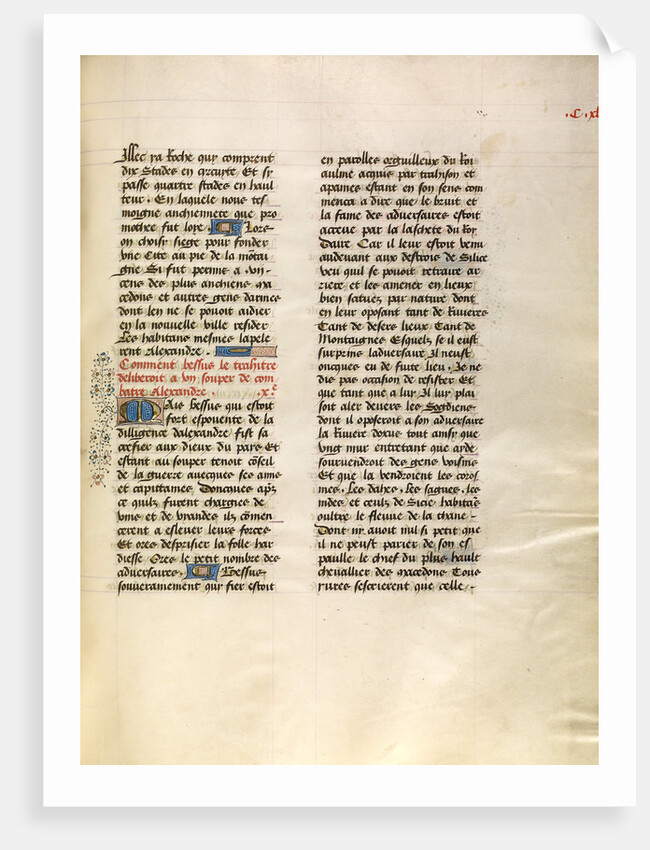 .C. xl
Illec ya Roche quy comprent
dix Stades en circuyte Et sy
passe quattre stades en haul
teur. En laquelle nous tes
moigne anchiennete que pro
mothee fut loye. Lors
on choisy siege pour fonder
vne Cite au pie de la mōtai
gne Si fut permis a .vij.
cens des plus anchiens ma
cedons et autres gens darmes
dont len ne se pouoit aidier
en la nouvelle ville resider
Les habitans mesmes lapele
rent Alexandre.
Comment bessus le trahitre
deliberoit a vn souper de com
batre Alexandre. .x.e
Mais bessus qui estoit
fort espouente de la
dilligence dalexandre fist sa
crefier aux dieux du pays Et
estant au souper tenoit cōseil
de la guerre auecques ses amis
et capittaines Doncques apz̄
ce quilz furent chargies de
vins et de viandes ilz cōmen
cerent a esleuer leurs forces
Et ores desprisier la folle har
diesse Ores le petit nombre des
aduersaires. Bessus
souuerainement quy fier estoit
en parolles orguilleux du Roi
aulme acquis par trahison et
apaines estant en son sens com
menca a dire que le bruit et
la fame des aduersaires estoit
accreue par la laschete du Roy
Daire Car il leur estoit venu
audeuant aux destrois de Silice
veu quil se pouoit retraire ar
riere et les amener en lieux
bien saturz par nature dont
en leur oposant tant de Riuieres
Tant de desers lieux Tant de
Montaignes Esquelz se il eust
surprins laduersaire Il neust
oncques eu de fuite lieu. Je ne
die pas occasion de resister Et
que tant que a luy Il luy plai
soit aler deuers les Sogdiens
dont il oposeroit a son aduersaire
la Riuiere doxus tout ainsy que
vng mur entretant que ayde
souruendroit des gens voisins
Et que la vendroient les coros
mes. Les dahes, les sagues, les
indes et ceulz de Sicie habitās
oultre le fleuue de la thane
Dont ny auoit nul si petit que
il ne peust parier de son es
paulle le chief du plus hault
cheuallier des macedons Tous
yures sescrierent que celle